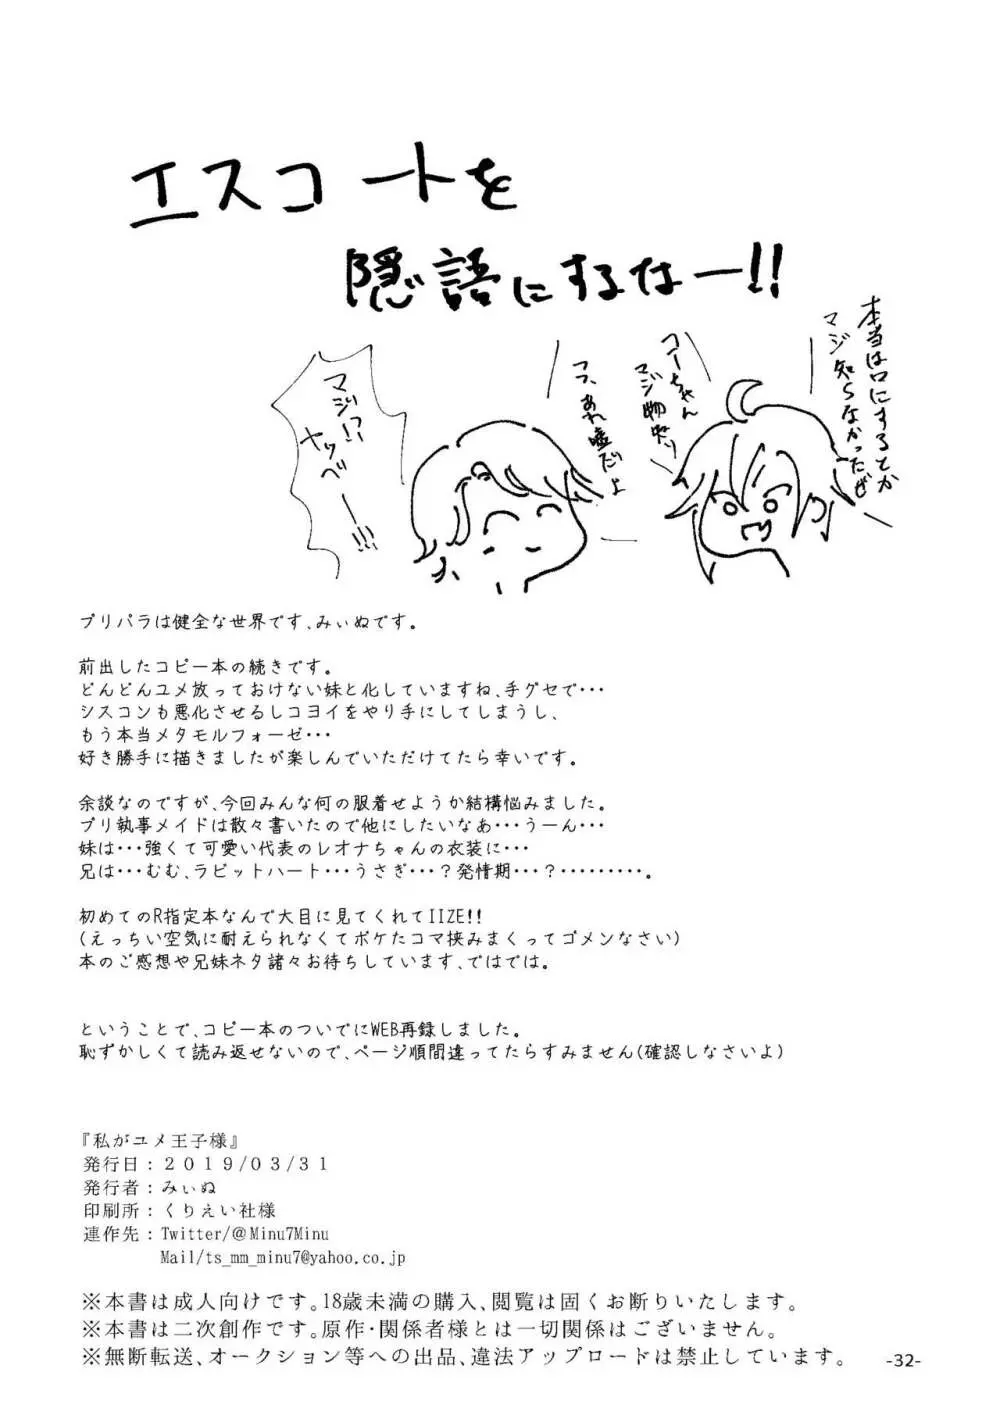 エスコートを
隠語にするなー!!
本当は口にするとか
マジ知らなかったぜ
コーちゃん
マジ物知り
フフ、あれ嘘だよ
マジっ!?
ナッベー!!!
プリパラは健全な世界です、みぃぬです。
前出したコピー本の続きです。
どんどんユメ放っておけない妹と化していますね、手グセで・・・
シスコンも悪化させるしコヨイをやり手にしてしまうし、
もう本当メタモルフォーゼ・・・
好き勝手に描きましたが楽しんでいただけてたら幸いです。
余談なのですが、今回みんな何の服着せようか結構悩みました。
プリ執事メイドは散々書いたので他にしたいなあ・・・うーん・・・
妹は・・・強くて可愛い代表のレオナちゃんの衣装に・・・
兄は・・・むむ、ラビットハート・・・うさぎ・・・？発情期・・・？・・・・・・・・・。
初めてのR指定本なんで大目に見てくれてIIZE!!
(えっちい空気に耐えられなくてボケたコマ挟みまくってゴメンなさい)
本のご感想や兄妹ネタ諸々お待ちしています、ではでは。
ということで、コピー本のついでにWEB再録しました。
恥ずかしくて読み返せないので、ページ順間違ってたらすみません(確認しなさいよ)
『私がユメ王子様』
発行日：２０１９/０３/３１
発行者：みぃぬ
印刷所：くりえい社様
連作先：Twitter/@Minu7Minu
Mail/ts_mm_minu7@yahoo.co.jp
※本書は成人向けです。18歳未満の購入、閲覧は固くお断りいたします。
※本書は二次創作です。原作・関係者様とは一切関係はございません。
※無断転送、オークション等への出品、違法アップロードは禁止しています。
-32-